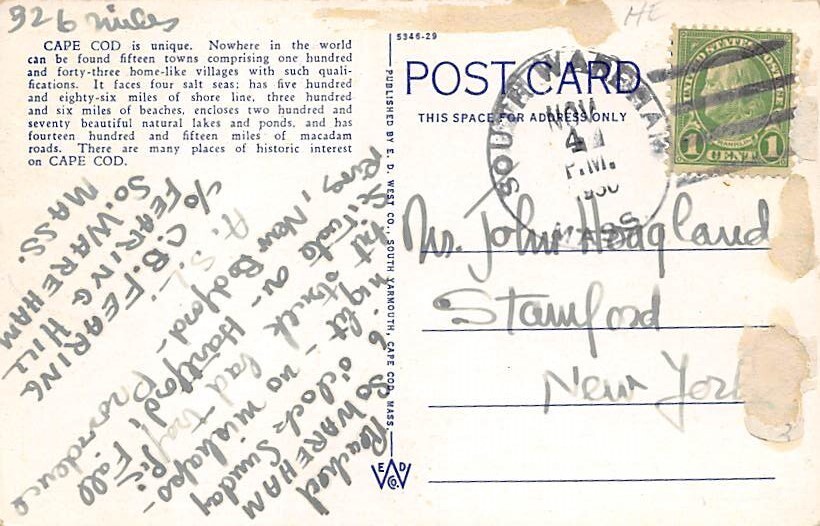 326 miles
CAPE COD is unique. Nowhere in the world
can be found fifteen towns comprising one hundred
and forty-three home-like villages with such quali-
fications. It faces four salt seas; has five hundred
and eighty-six miles of shore line, three hundred
and six miles of beaches, encloses two hundred and
seventy beautiful natural lakes and ponds, and has
fourteen hundred and fifteen miles of macadam
roads. There are many places of historic interest
on CAPE COD.
Reached
So WAREHAM
6 o'clock Sunday
night - no mishaps -
but struck bad
on - Hartford,
Providence
Fall
River, New Bedford -
A. S.
% C. B. FEARING
FEARING HILL
SO. WAREHAM
MASS.
PUBLISHED BY E. D. WEST CO., SOUTH YARMOUTH, CAPE COD, MASS.
E D
W
CO.
5346-29
HE
POST CARD
THIS SPACE FOR ADDRESS ONLY
SOUTH WAREHAM
NOV
4
P.M.
1930
MASS.
UNITED STATES POSTAGE
FRANKLIN
1 CENT 1
Mr. John Hoagland
Stamford
New York